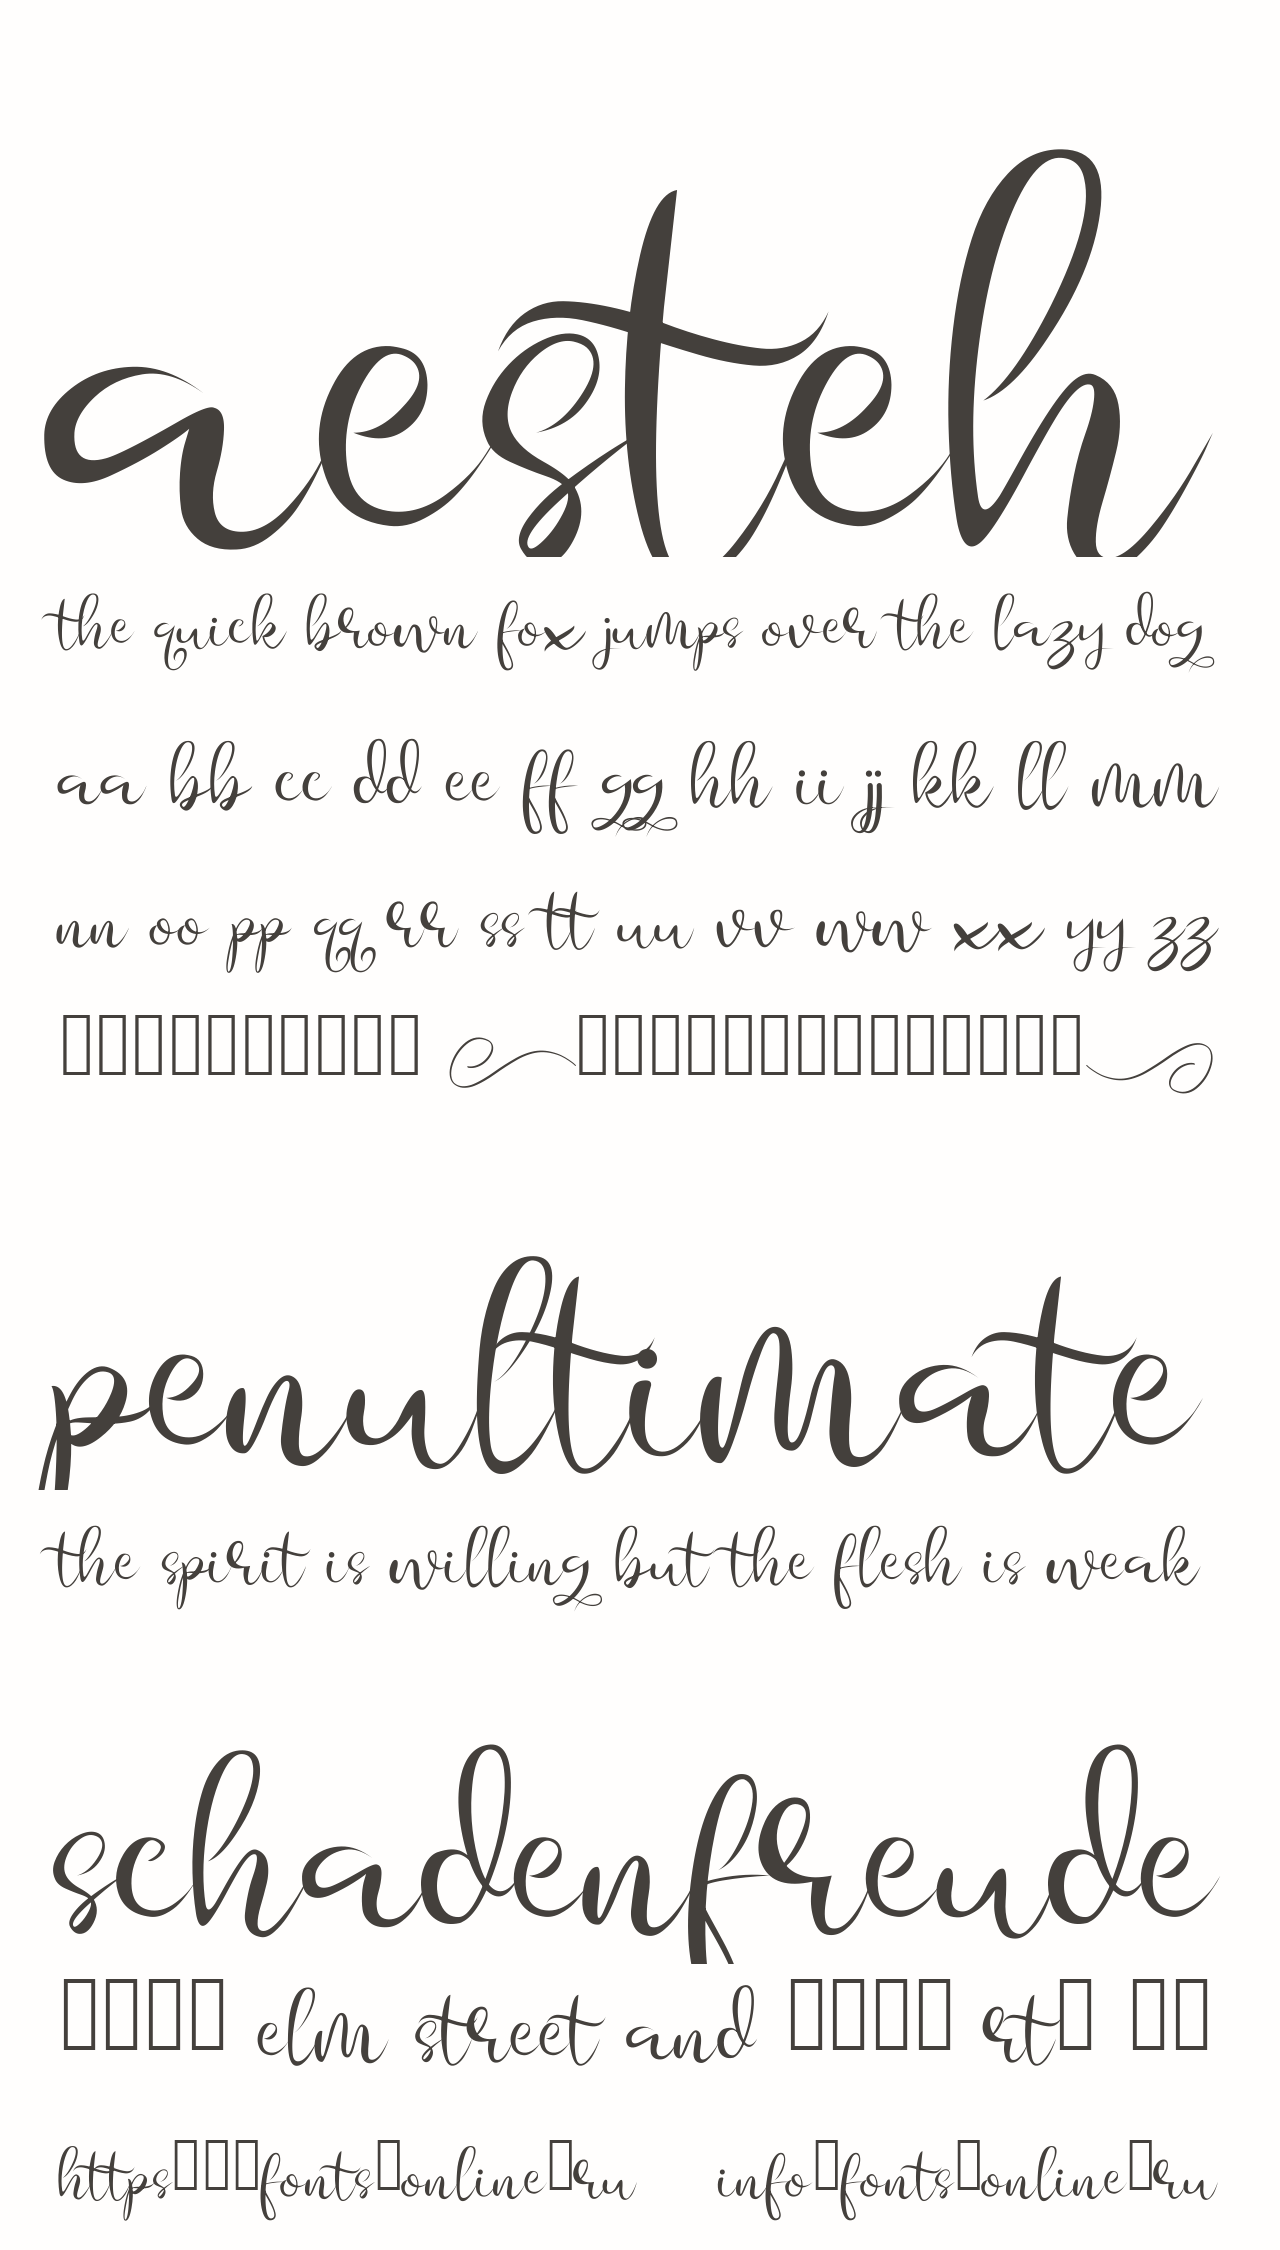 aesteh
the quick brown fox jumps over the lazy dog
aa bb cc dd ee ff gg hh ii jj kk ll mm
nn oo pp qq rr ss tt uu vv ww xx yy zz
penultimate
the spirit is willing but the flesh is weak
schadenfreude
▯▯▯▯ elm street and ▯▯▯▯ rt▯ ▯▯
https▯▯▯fonts▯online▯ru info▯fonts▯online▯ru